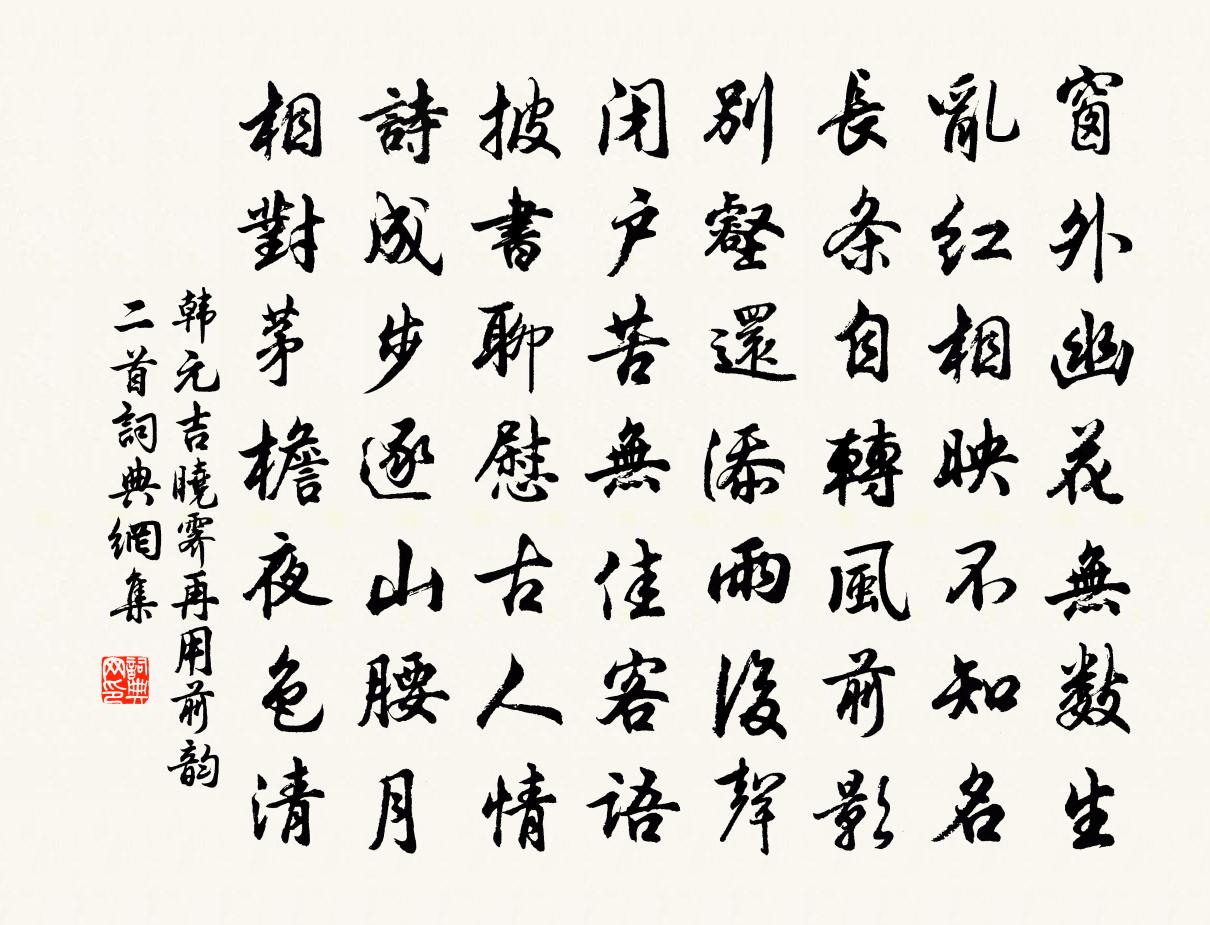 窗外幽花無數生
亂紅相映不知名
長条自轉風前影
別壑還添雨後聲
闭户苦無佳客語
披書聊慰古人情
詩成步逐山腰月
相對茅檐夜色清
韩元吉曉霽再用前韵
二首詞典網集
詞典网印